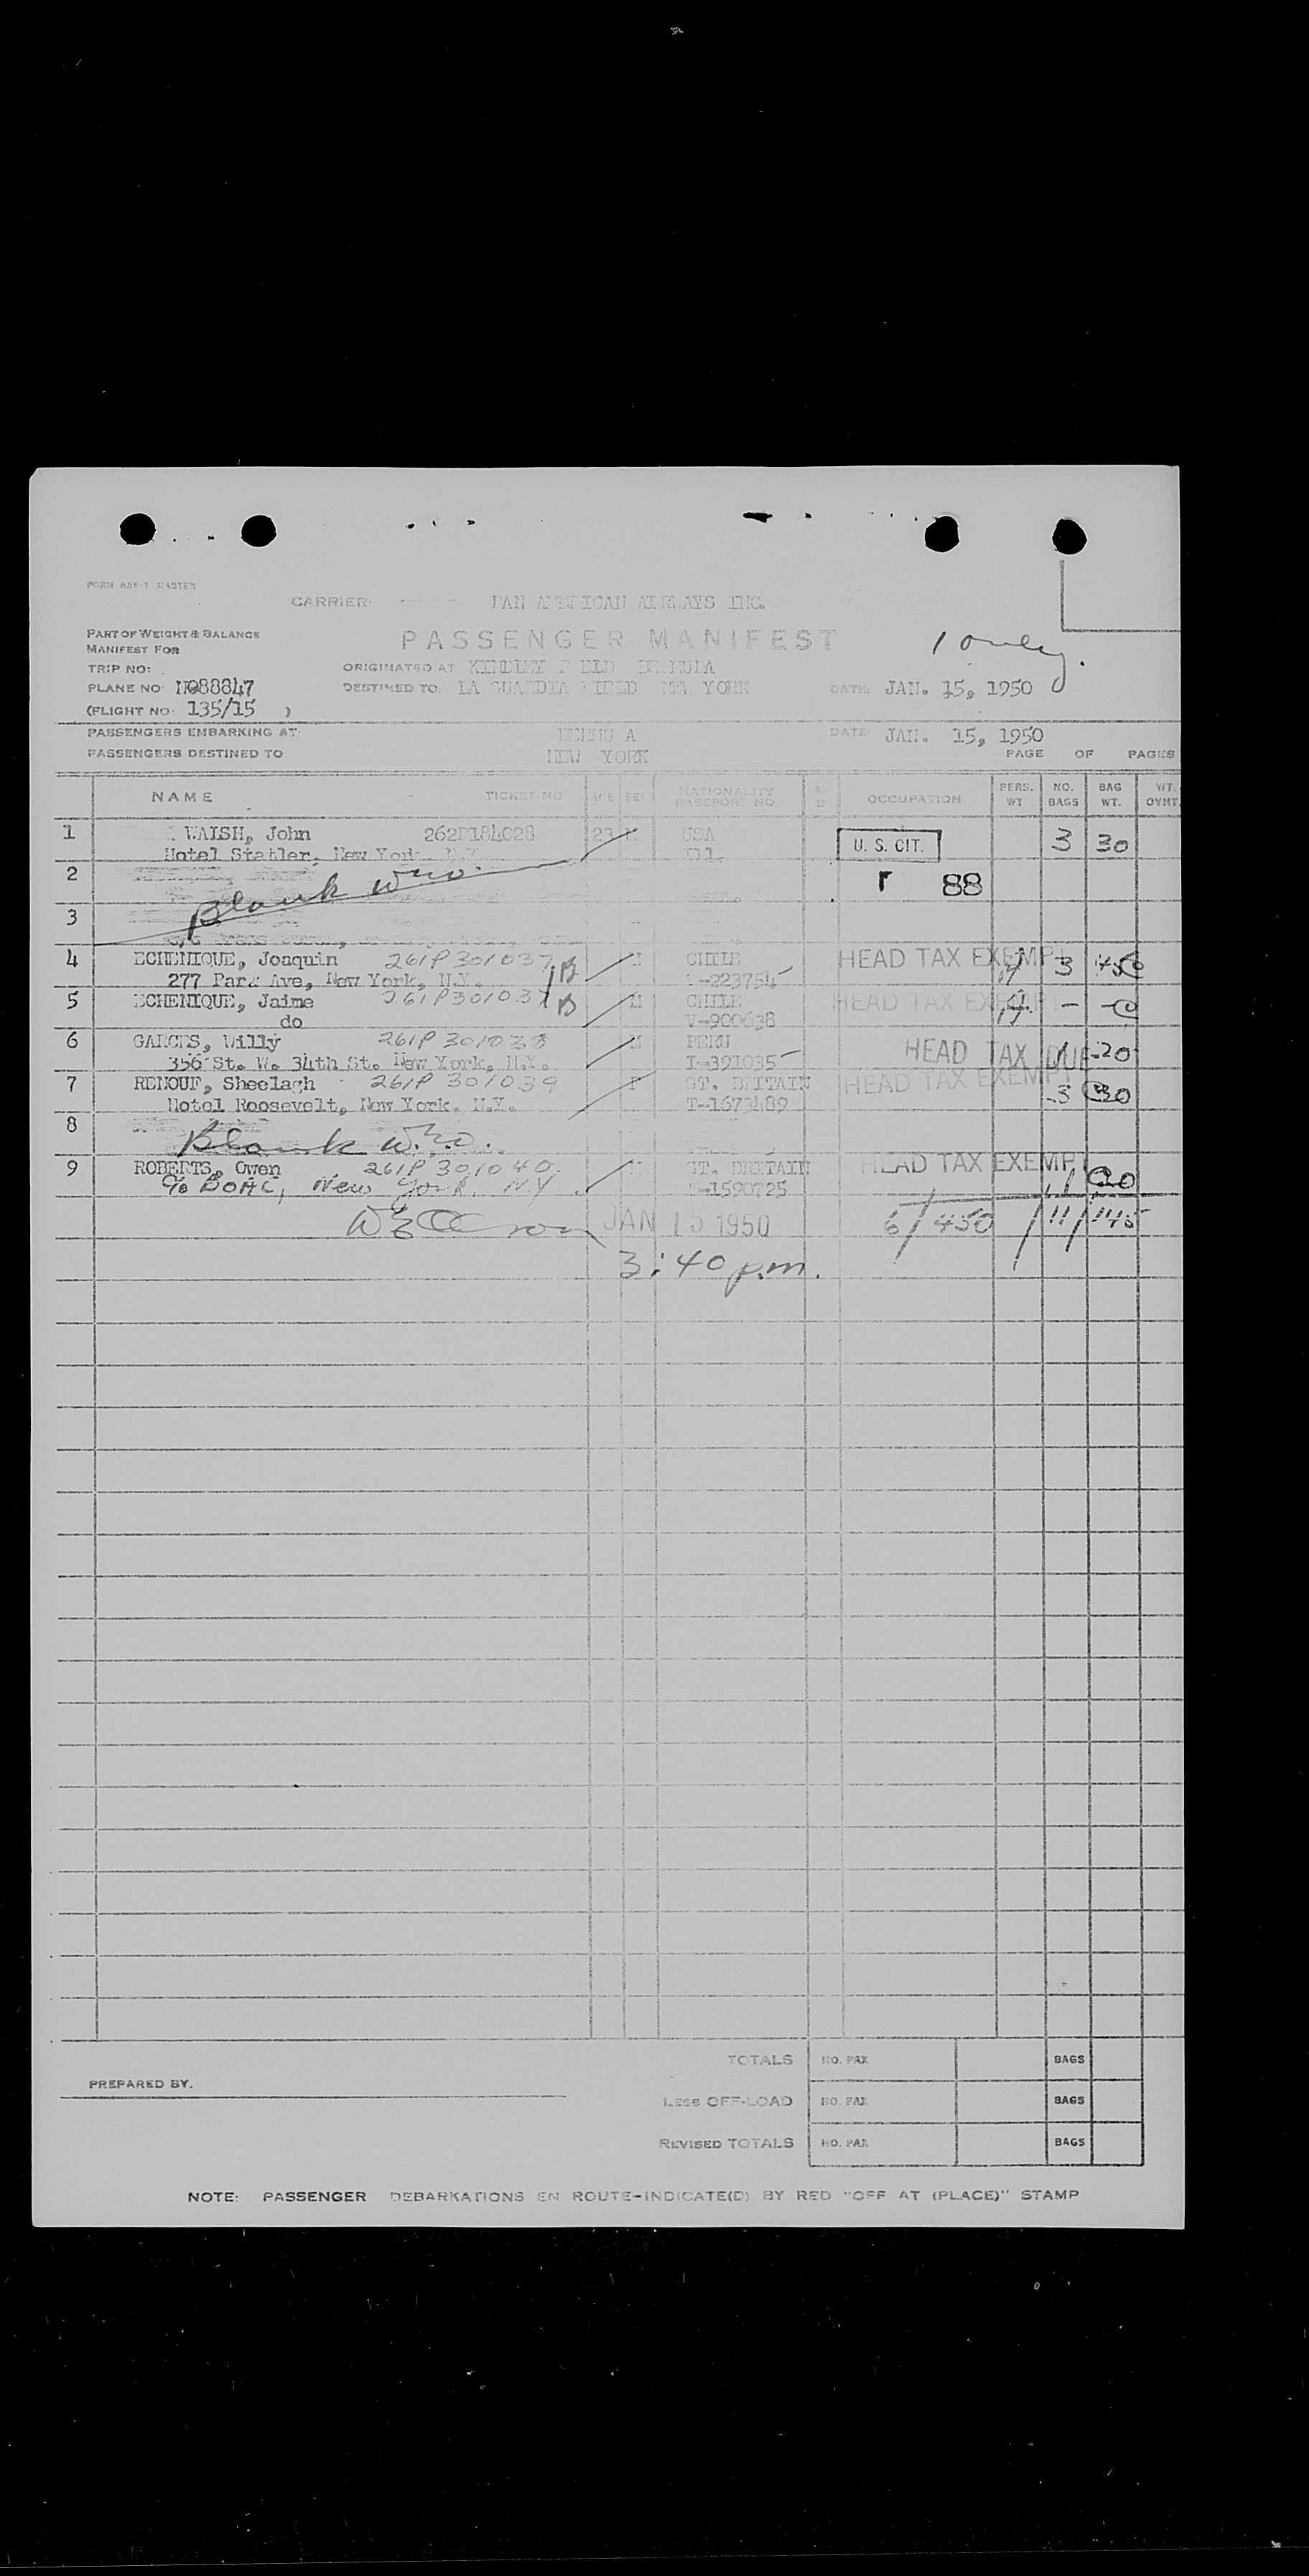 FORM MASTER
CARRIER PAN AMERICAN AIRWAYS INC.
PART OF WEIGHT & BALANCE
MANIFEST FOR
PASSENGER MANIFEST
1 only.
TRIP NO:
ORIGINATED AT KINDLEY FIELD BERMUDA
PLANE NO: N088847
DESTINED TO: LA GUARDIA FIELD NEW YORK
DATE: JAN. 15, 1950
(FLIGHT NO: 135/15 )
PASSENGERS EMBARKING AT: BERMUDA DATE: JAN. 15, 1950
PASSENGERS DESTINED TO NEW YORK PAGE OF PAGES
NAME TICKET NO AGE SEX NATIONALITY PASSPORT NO. M S OCCUPATION PERS. WT NO. BAGS BAG WT. WT. OVWT.
1 WALSH, John 262P184028 23 USA U. S. CIT. 3 30
Hotel Statler, New York, N.Y.
2 r 88
Blank
3
4 ECHENIQUE, Joaquin 261P301037 M CHILE HEAD TAX EXEMPT 3 45
277 Park Ave, New York, N.Y. -223754
5 ECHENIQUE, Jaime 261P301037 M CHILE HEAD TAX EXEMPT - -
do V-900638
6 GARCES, Willy 261P301038 M PERU HEAD TAX DUE 1 20
356 St. W. 34th St. New York, N.Y. I-391035
7 RENOUF, Sheelagh 261P301039 F GT. BRITAIN HEAD TAX EXEMPT 3 30
Hotel Roosevelt, New York, N.Y. T-1673489
8
Blank
9 ROBERTS, Owen 261P301040 GT. BRITAIN HEAD TAX EXEMPT 1 20
c/o BOAC, New York, N.Y. -1590725
JAN 15 1950 6/450 / 11/145
3:40 p.m.
TOTALS NO. PAX BAGS
PREPARED BY.
LESS OFF-LOAD NO. PAX BAGS
REVISED TOTALS NO. PAX BAGS
NOTE: PASSENGER DEBARKATIONS EN ROUTE-INDICATE(D) BY RED "OFF AT (PLACE)" STAMP